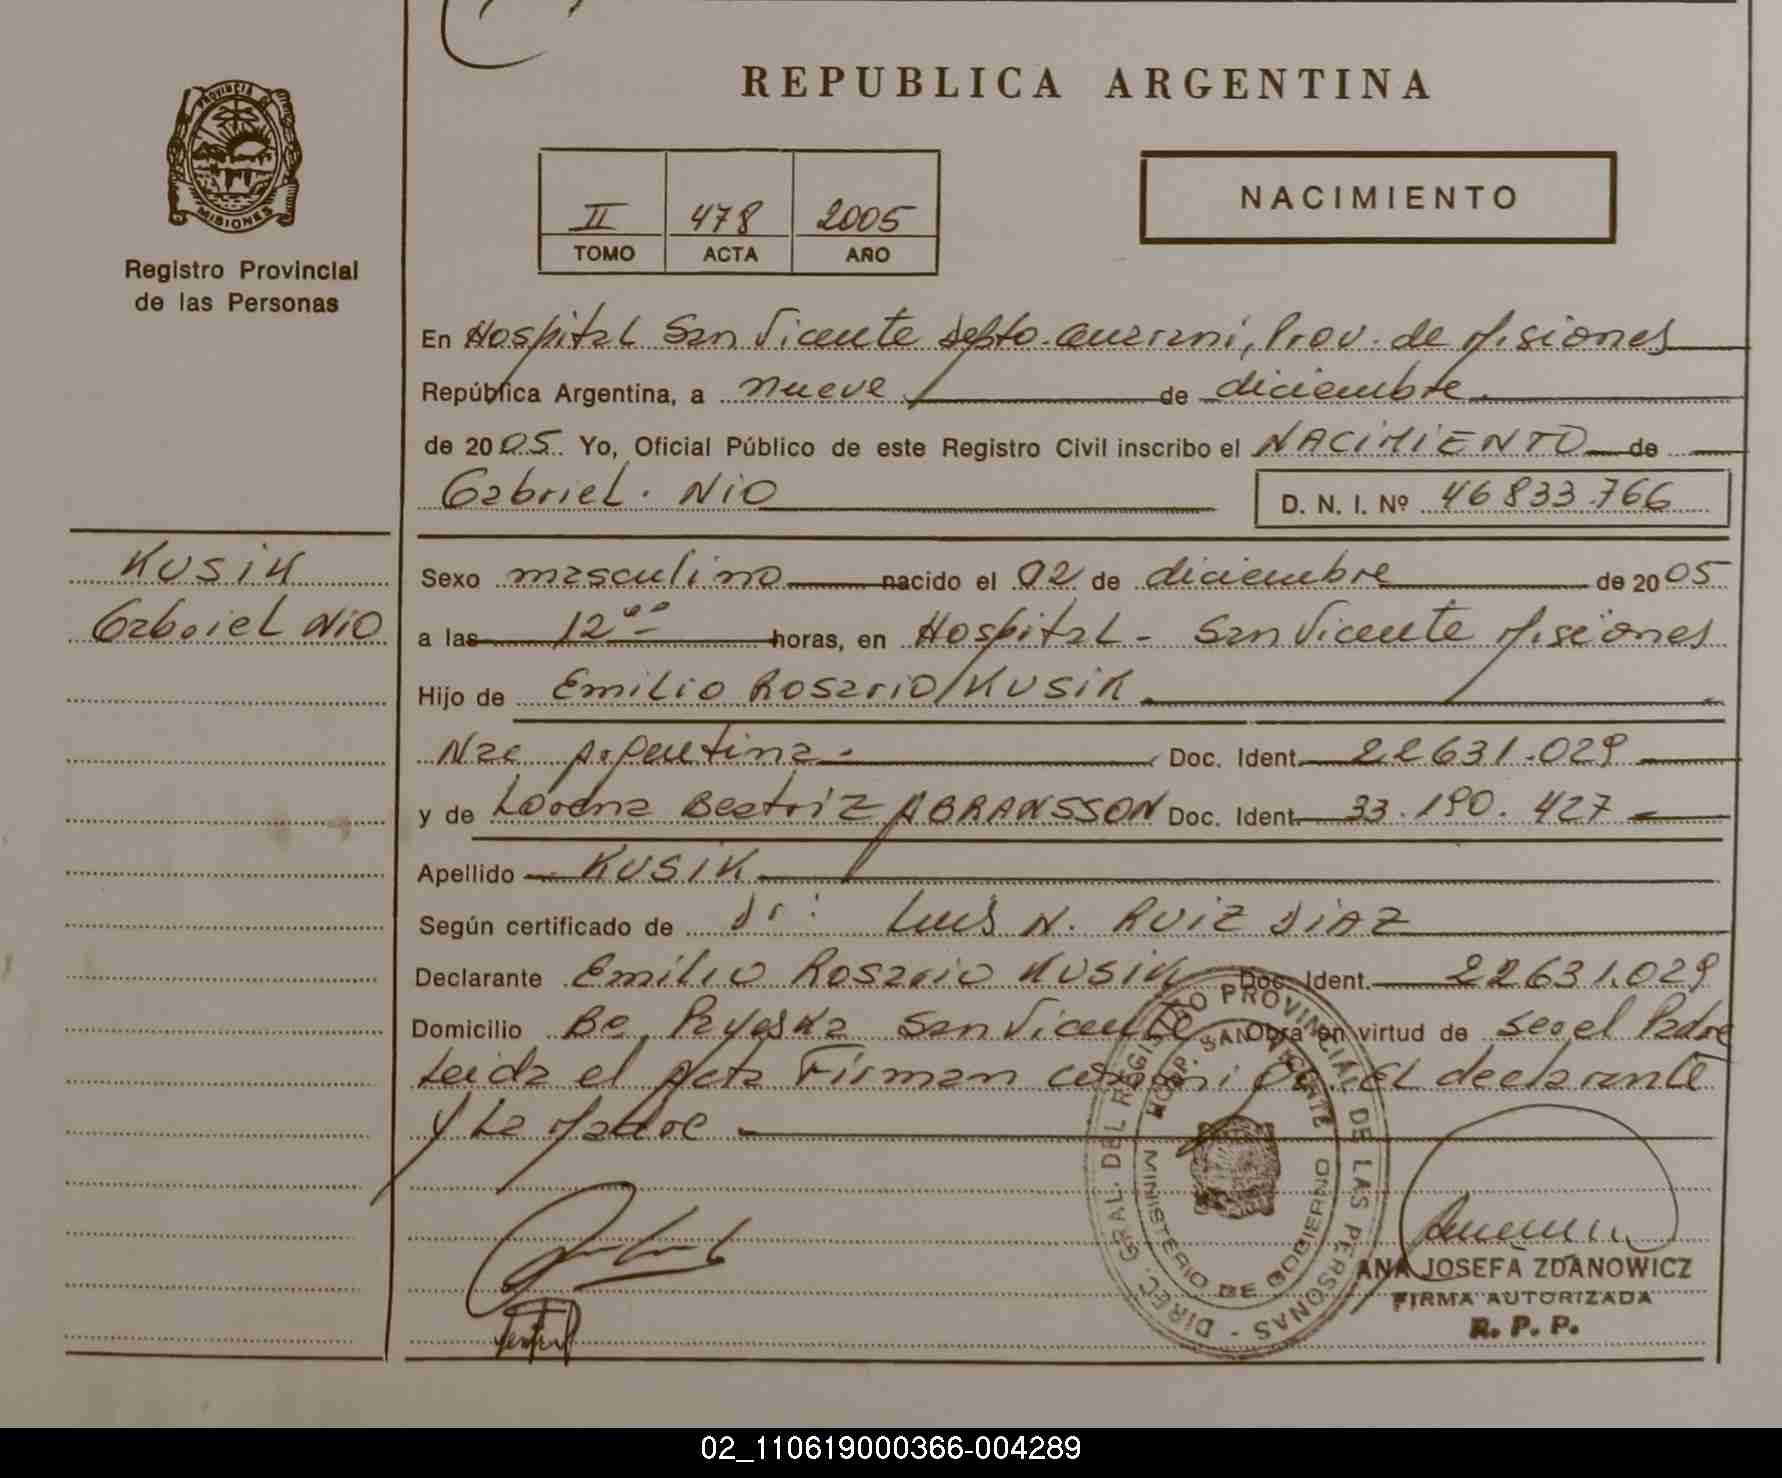 REPUBLICA ARGENTINA
PROVINCIA DE
MISIONES
Registro Provincial
de las Personas
II 478 2005
TOMO ACTA AÑO
NACIMIENTO
En Hospital San Vicente Depto. Guarani, Prov. de Misiones
República Argentina, a nueve de diciembre
de 2005. Yo, Oficial Público de este Registro Civil inscribo el NACIMIENTO de
Gabriel. NIO
D. N. I. Nº 46 833.766
KUSIK
Gabriel NIO
Sexo masculino nacido el 02 de diciembre de 2005
a las 12°° horas, en Hospital - San Vicente Misiones
Hijo de Emilio Rosario KUSIK
Nac Argentina - Doc. Ident. 22631.029
y de Lorena Beatriz ABRANSSON Doc. Ident. 33.190.427
Apellido KUSIK
Según certificado de Dr: Luis N. RUIZ DIAZ
Declarante Emilio Rosario KUSIK Doc. Ident. 22631.029
Domicilio Bo San Vicente Obra en virtud de ser el Padre
Leida el Acta Firman conmigo El declarante
y La Madre
DIREC. GRAL. DEL REGISTRO PROVINCIAL DE LAS PERSONAS -
HOSP. SAN VICENTE
MINISTERIO DE GOBIERNO
ANA JOSEFA ZDANOWICZ
FIRMA AUTORIZADA
R. P. P.
02_110619000366-004289